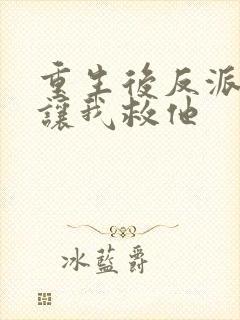 重生後反派
讓我救他
冰藍爵